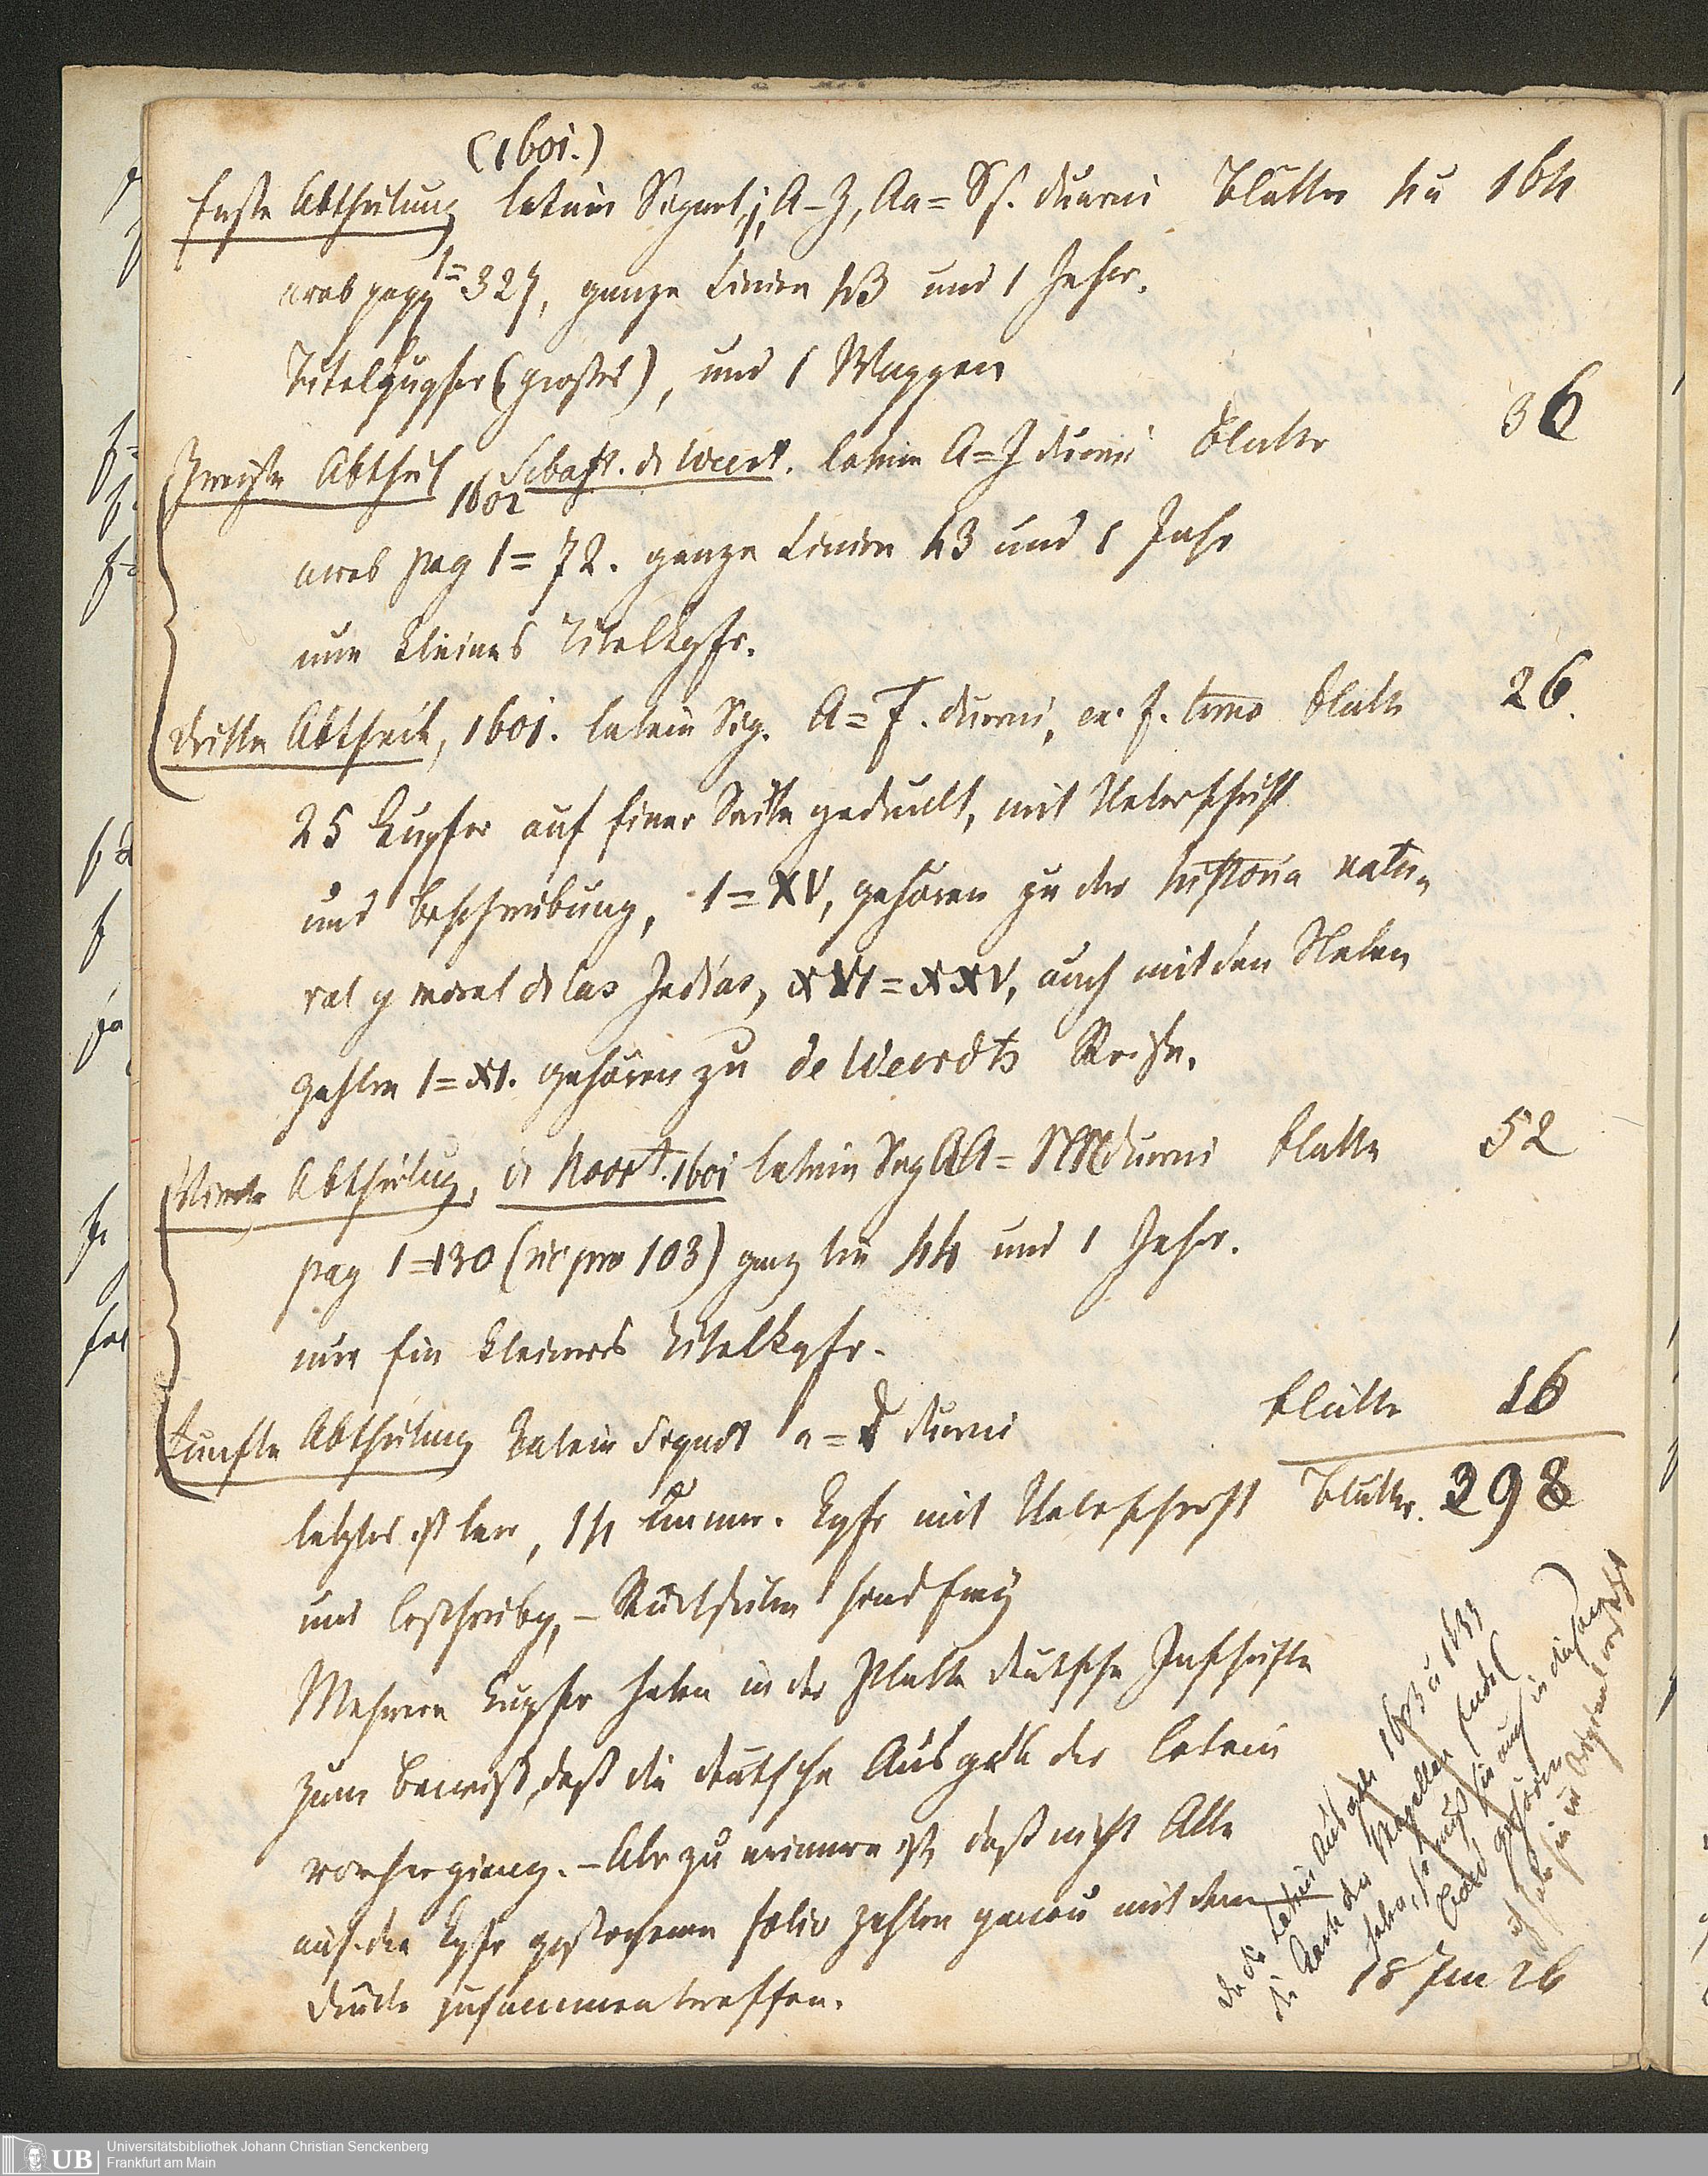 (1601.)
Erste Abtheilung latein Signat j, A–Z, Aa= Sſ. duerni Blätter zu 164
arab pagg 1=327, ganze Linien 43 und 1 Zahlr.
Titelkupfer (großes), und 1 Wappen
Zweyte Abtheil 1602 Sebast. de Weert. latein A=J duerni Blatter 36
arab pag 1=72. ganze Linien 43 und 1 Zahlr
nur kleines Titelkpfr.
dritte Abtheil, 1601. latein Sig. A=F. duerni, ex. f. terno Blatt 26.
25 Kupfer auf einer Seite gedruckt, mit Ueberschrift
und Beschreibung, 1=XV, gehören zu der historia natu-
ral y moral de las Indias, XVI=XXV, auch mit den Neben
Zahlen 1=XI. gehören zu de Weerdts Reise.
Vierte Abtheilug, de Noort. 1601 latein Sig AA= NN duerni Blatte 52
pag 1=130 (sic pro 103) ganz lin 44 und 1 Zahlr.
nur ein kleineres Titelkpfr.
Funfte Abtheilung Latein Signat a=d duerni Blätte 16
letztes ist leer, 14 numer. Kpfr mit Ueberschrift Blätter. 298
und beschreibg, – Rückseiten sind frey
Mehrere Kupfer haben in der Platte deutsche Inschrifte
zum Beweiß, daß die deutsche Ausgabe der latein
vorherging. – Aber zu erinnern ist, daß nicht Alle
auf den Kpfr gestochenen folio zahlen genau mit dem
Drucke zusammentreffen.
da die Latein Ausgabe 1603 u 1633
die Karte der Magellan
haben, so muß sie auch in
Band gehören
18 Jun 26
Universitätsbibliothek Johann Christian Senckenberg
Frankfurt am Main
UB